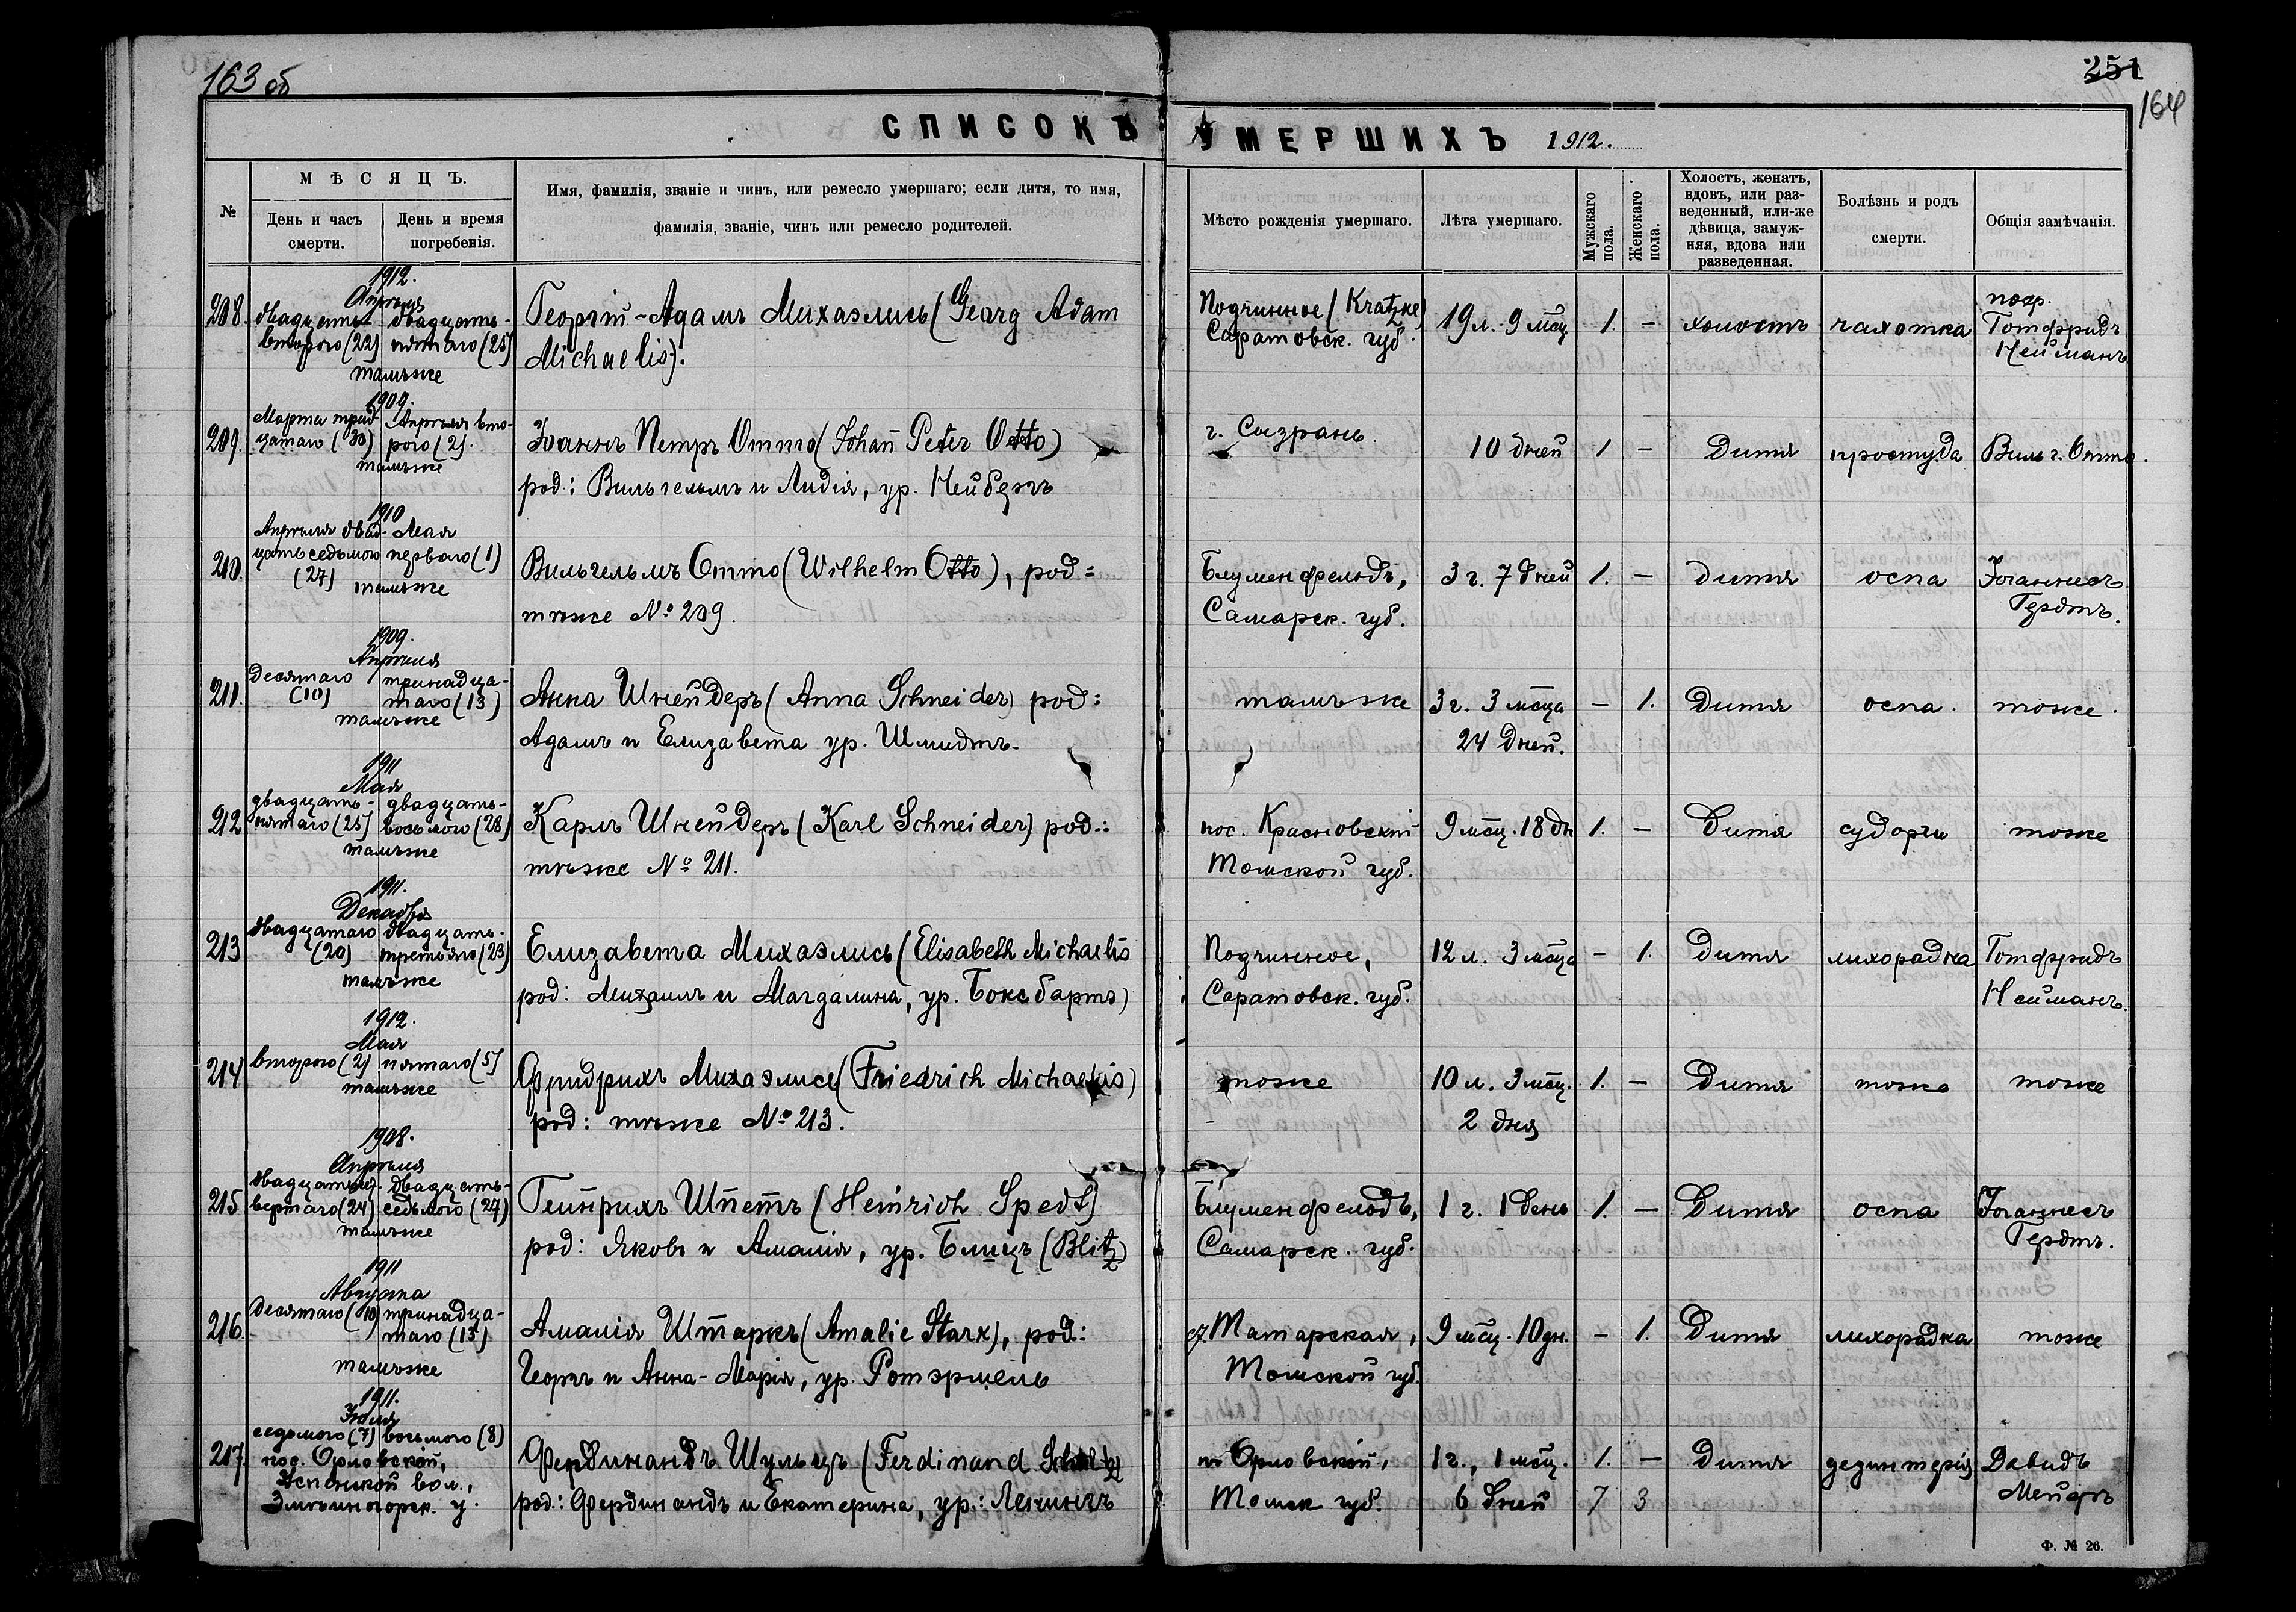 163 об
251
164
СПИСОКЪ УМЕРШИХЪ 1912.
№
МѢСЯЦЪ.
День и часъ смерти.
День и время погребенія.
Имя, фамилія, званіе и чинъ, или ремесло умершаго; если дитя, то имя,
фамилія, званіе, чинъ или ремесло родителей.
Мѣсто рожденія умершаго.
Лѣта умершаго.
Мужскаго пола.
Женскаго пола.
Холостъ, женатъ,
вдовъ, или раз-
веденный, или-же
дѣвица, замуж-
няя, вдова или
разведенная.
Болѣзнь и родъ
смерти.
Общія замѣчанія.
1912.
Апрѣля
208. двадцать- двадцать- Георгій-Адамъ Михаэлисъ (Georg Adam Подчинное (Kratzke) 19 л. 9 мсц. 1. – холостъ чахотка погр.
второго (22) пятаго (25) Michaelis). Саратовск. губ. Готфридъ
тамъже Нейманъ
1909.
Марта трид- Апрѣля вто-
209. цатаго (30) рого (2). Іоаннъ Петръ Отто (Johan̄ Peter Otto) г. Сызрань. 10 дней 1 – Дитя простуда Вильг. Отто.
тамъже
род.: Вильгельмъ и Лидія, ур. Нейбергъ
1910
Апрѣля двад- Мая
210. цать седьмого перваго (1) Вильгельмъ Отто (Wilhelm Otto), род= Блуменфельдъ, 3 г. 7 дней 1. – дитя оспа Іоганнесъ
(27) тамъже тѣже № 209. Самарск. губ. Гердтъ.
1909.
Апрѣля
211. десятаго тринадца- Анна Шнейдеръ (Anna Schneider) род: тамъже 3 г. 3 мсца – 1. Дитя оспа. тоже.
(10) таго (13)
тамъже Адамъ и Елизавета ур. Шмидтъ. 24 дней.
1911
Мая
двадцать- двадцать-
212 пятаго (25) восьмого (28) Карлъ Шнейдеръ (Karl Schneider) род.: пос. Красновскій 9 мсц. 18 дн 1. – Дитя судорги тоже
тамъже тѣже № 211. Томской губ.
1911.
Декабря
213 двадцатаго двадцать- Елизавета Михаэлисъ (Elisabeth Michaelis Подчинное, 12 л. 3 мсца – 1. Дитя лихорадка Готфридъ
(20) третьяго (23)
тамъже род: Михаилъ и Магдалина, ур. Боксбартъ) Саратовск. губ. Нейманъ.
1912.
Мая
214 второго (2) пятаго (5) Фридрихъ Михаэлисъ (Friedrich Michaelis) тоже 10 л. 3 мсц. 1. – Дитя тоже тоже
тамъже
род: тѣже № 213. 2 дня
1908.
Апрѣля
двадцать чет- двадцать-
215. вертаго (24) седьмого (27) Гейнрихъ Шпетъ (Heinrich Spedt) Блуменфельдъ, 1 г. 1 день 1. – Дитя оспа Іоганнесъ
тамъже род: Яковъ и Амалія, ур. Блицъ (Blitz) Самарск. губ. Гердтъ.
1911
Августа
десятаго (10) тринадца-
216. таго (13) Амалія Штаркъ (Amalie Stark), род.: ст. Татарская, 9 мсц. 10 дн. – 1. Дитя лихорадка тоже
тамъже Георгъ и Анна-Марія, ур. Ротэрмель Томской губ.
1911.
Іюля
седьмого (7) восьмого (8)
217. пос. Орловской, Фердинандъ Шульцъ (Ferdinand Schultz) п. Орловской, 1 г., 1 мсц. 1. – Дитя дезинтерія Давидъ
вол.,
Змѣиногорск. у. род.: Фердинандъ и Екатерина, ур.: Ленингъ Томск губ. 6 дней 7 3 Мейдръ
Ф. № 26.